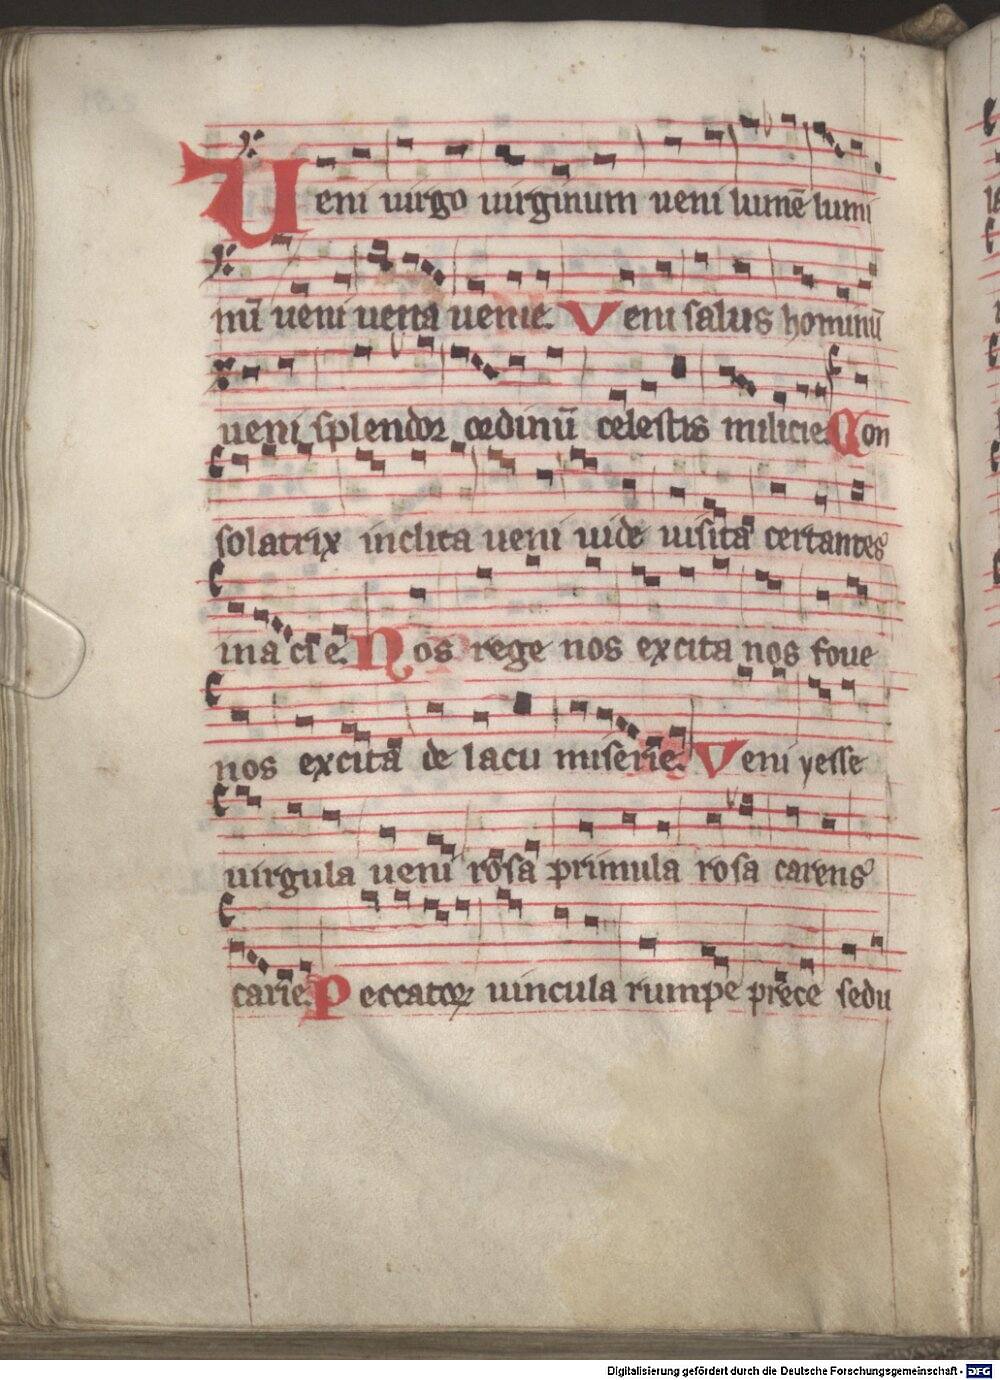 Ueni uirgo uirginum ueni lumē lumi
nū ueni uena uenie. Veni salus hominū
ueni splendor ordinū celestis milicie. Con
solatrix inclita ueni uide uisita certantes
in acie. Nos rege nos excita nos foue
nos excita de lacu miserie. Veni yesse
uirgula ueni rosa primula rosa carens
carie. Peccatoꝝ uincula rumpe prece sedu
Digitalisierung gefördert durch die Deutsche Forschungsgemeinschaft - DFG